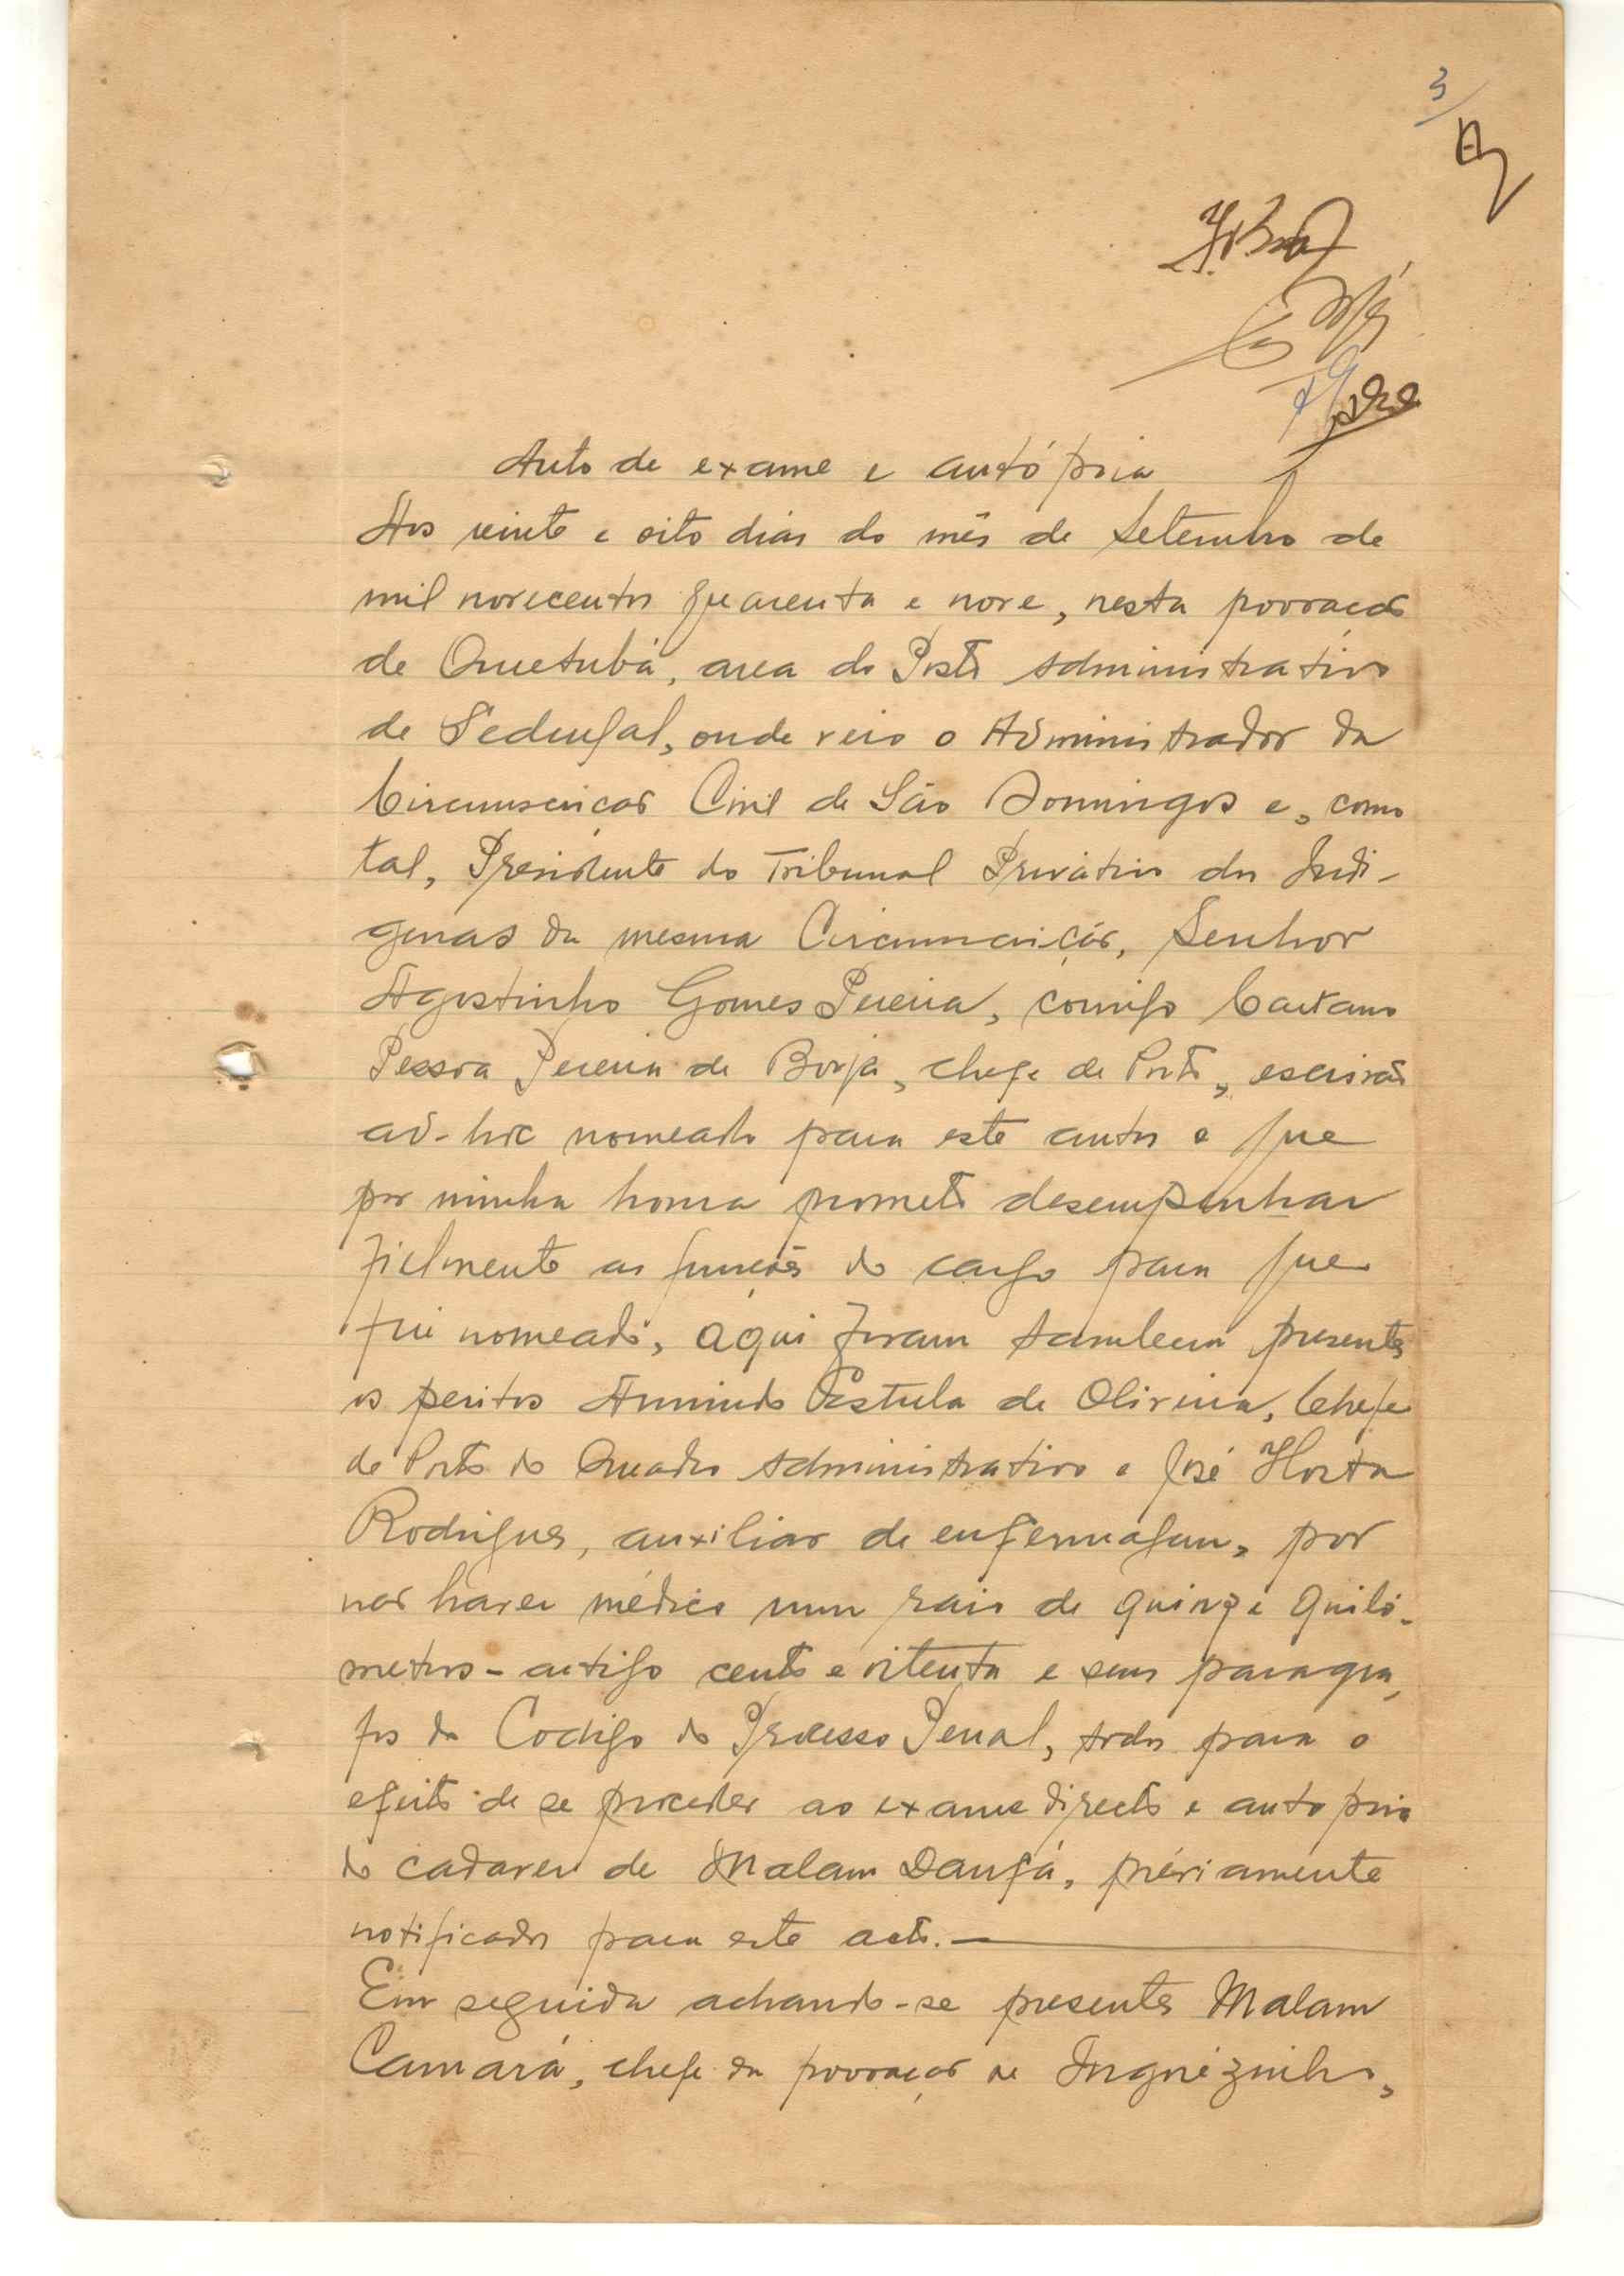 3
Auto de exame e autópsia
Aos vinte e oito dias do mês de Setembro de
mil novecentos quarenta e nove, nesta povoação
de Quetubá, area do Posto Administrativo
de Sedengal, onde veio o Administrador da
Circunscrição Civil de São Domingos e, como
tal, Presidente do Tribunal Privativo dos Indi-
genas da mesma Circunscrição, Senhor
Agostinho Gomes Pereira, comigo Caetano
Pessoa Pereira de Borja, chefe de Posto, escrivão
ad-hoc nomeado para este auto e que
por minha honra prometo desempenhar
fielmente as funções do cargo para que
fui nomeado, aqui foram tambem presentes
os peritos Armindo de Oliveira, Chefe
de Posto do Quadro Administrativo e José Horta
Rodrigues, auxiliar de enfermagem, por
não haver médico num raio de quinze quiló-
metros - artigo cento e oitenta e seus paragra
fos do Codigo do Processo Penal, todos para o
efeito de se proceder ao exame directo e autopsia
do cadaver de Malam Danfá, préviamente
notificados para este acto. —
Em seguida achando-se presentes Malam
Camará, chefe da povoação de Inguézinho,